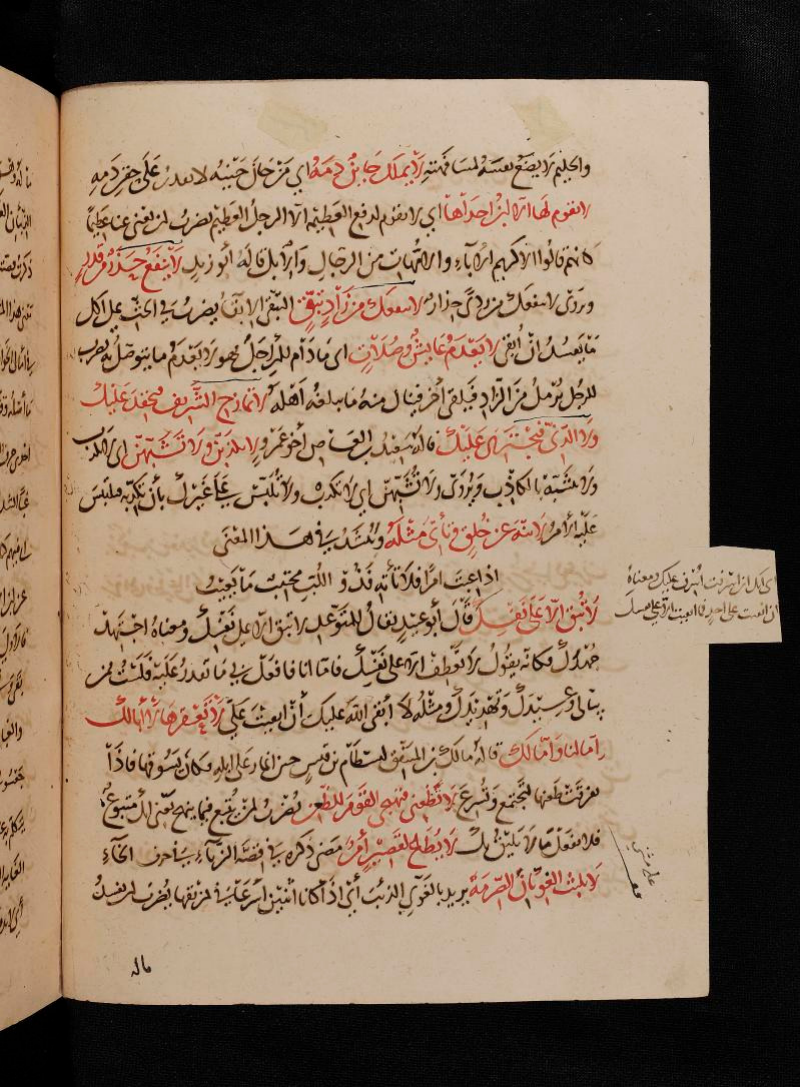 والحليم لا يضع نفسه لمسافهته لا يملك حائن دمه اي من حان حينه لا يقدر على حقن دمه
لا يقوم لها الا ابن احداها اي لا يقوم لدفع العظيمة الا الرجل العظيم يضرب لمن يغني غناء عظيما
كانهم قالوا الا كريم الاباء والامهات من الرجال والابل قاله ابو زيد لا ينفع حذر من قدر
ويروى لا ينفعك من رديء حذار لا ينفعك من زاد تبق التبقي الابقاء يضرب في الحث على اكل
ما يفسد ان ابقي لا يعدم عايش وصلات اي ما دام للمرء اجل فهو لا يعدم ما يتوصل به يضرب
للرجل يرمل من الزاد فيلقى اخر فينال منه ما يبلغه اهله لا تمازح الشريف فيحقد عليك
ولا الدني فيجترئ عليك قاله سعيد بن العاص اخو عمرو لا تكذبن ولا تشبهن اي لا تكذب
ولا تشبه بالكاذب ويروى ولا تشبهن اي لا تكذب ولا تلبس على غيرك بان تكذبه فيلتبس
عليه الامر لا تنه عن خلق وتأتي مثله وينشد في هذا المعنى
اذا عبت امرا فلا تأته فذو اللب مجتنب ما يعيب
لا تبق الا على نفسك قال ابو عبيد يقال للمتوعد لا تبق الا على نفسك ومعناه اجتهد
جهدك فكانه يقول لا تعطف الا على نفسك فاما انا فافعل بي ما تقدر عليه قلت من
ومثله لا ابقى الله عليك ان ابقيت علي لا تعقرها لا ابا لك
اما لنا واما لك قاله مالك بن المنتفق لبسطام بن قيس حين اغار على ابله وكان يسوقها فاذا
تفرقت طعنها لتجتمع وتسرع لا تظعني فتهيجي القوم للظعن يضرب لمن يتبع فيما ينهج يعني انك متبوع
فلا تفعل ما لا يليق بك لا يطاع لقصير امر مضى ذكره في قصة الزباء في حرف الخاء
لا يلبث الغويان الصرمة يريد بالغوي الذئب اي اذا كانا اثنين اسرعا في تمزيقها يضرب لمن يفسد
ماله
اي لك ان اشرفت ابقي عليك ومعناه
ان ابقيت على احد فما ابقيت الا على نفسك